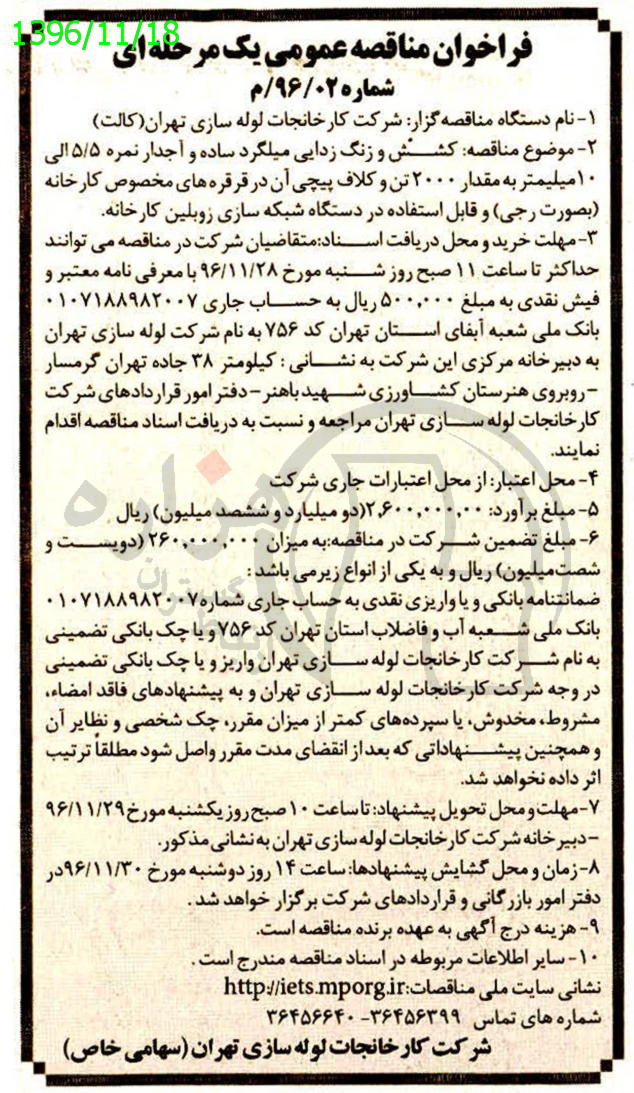 1396/11/18
فراخوان مناقصه عمومی یک مرحله ای
شماره ۹۶/۰۲/م
۱- نام دستگاه مناقصه گزار: شرکت کارخانجات لوله سازی تهران(کالت)
۲- موضوع مناقصه: کشش و زنگ زدایی میلگرد ساده و آجدار نمره ۵/۵ الی
۱۰میلیمتر به مقدار ۲۰۰۰ تن و کلاف پیچی آن در قرقره های مخصوص کارخانه
(بصورت رجی) و قابل استفاده در دستگاه شبکه سازی زوبلین کارخانه.
۳- مهلت خرید و محل دریافت اسناد:متقاضیان شرکت در مناقصه می توانند
حداکثر تا ساعت ۱۱ صبح روز شنبه مورخ ۹۶/۱۱/۲۸ با معرفی نامه معتبر و
فیش نقدی به مبلغ ۵۰۰,۰۰۰ ریال به حساب جاری ۰۱۰۷۱۸۸۹۸۲۰۰۷
بانک ملی شعبه آبفای استان تهران کد ۷۵۶ به نام شرکت لوله سازی تهران
به دبیرخانه مرکزی این شرکت به نشانی : کیلومتر ۳۸ جاده تهران گرمسار
-روبروی هنرستان کشاورزی شهید باهنر - دفتر امور قراردادهای شرکت
کارخانجات لوله سازی تهران مراجعه و نسبت به دریافت اسناد مناقصه اقدام
نمایند.
۴- محل اعتبار: از محل اعتبارات جاری شرکت
۵- مبلغ برآورد: ۲,۶۰۰,۰۰۰,۰۰۰(دو میلیارد و ششصد میلیون) ریال
۶- مبلغ تضمین شرکت در مناقصه:به میزان ۲۶۰,۰۰۰,۰۰۰ (دویست و
شصت میلیون) ریال و به یکی از انواع زیرمی باشد :
ضمانتنامه بانکی و یا واریزی نقدی به حساب جاری شماره۰۱۰۷۱۸۸۹۸۲۰۰۷
بانک ملی شعبه آب و فاضلاب استان تهران کد ۷۵۶ و یا چک بانکی تضمینی
به نام شرکت کارخانجات لوله سازی تهران واریز و یا چک بانکی تضمینی
در وجه شرکت کارخانجات لوله سازی تهران و به پیشنهادهای فاقد امضاء،
مشروط، مخدوش، یا سپرده‌های کمتر از میزان مقرر، چک شخصی و نظایر آن
و همچنین پیشنهاداتی که بعد از انقضای مدت مقرر واصل شود مطلقاً ترتیب
اثر داده نخواهد شد.
۷- مهلت و محل تحویل پیشنهاد: تا ساعت ۱۰ صبح روز یکشنبه مورخ ۹۶/۱۱/۲۹
-دبیر خانه شرکت کارخانجات لوله سازی تهران به نشانی مذکور.
۸- زمان و محل گشایش پیشنهادها: ساعت ۱۴ روز دوشنبه مورخ ۹۶/۱۱/۳۰در
دفتر امور بازرگانی و قراردادهای شرکت برگزار خواهد شد .
۹- هزینه درج آگهی به عهده برنده مناقصه است.
۱۰- سایر اطلاعات مربوطه در اسناد مناقصه مندرج است .
نشانی سایت ملی مناقصات:http://iets.mporg.ir
شماره های تماس ۳۶۴۵۶۳۹۹- ۳۶۴۵۶۶۴۰
شرکت کارخانجات لوله سازی تهران (سهامی خاص)
هزاره